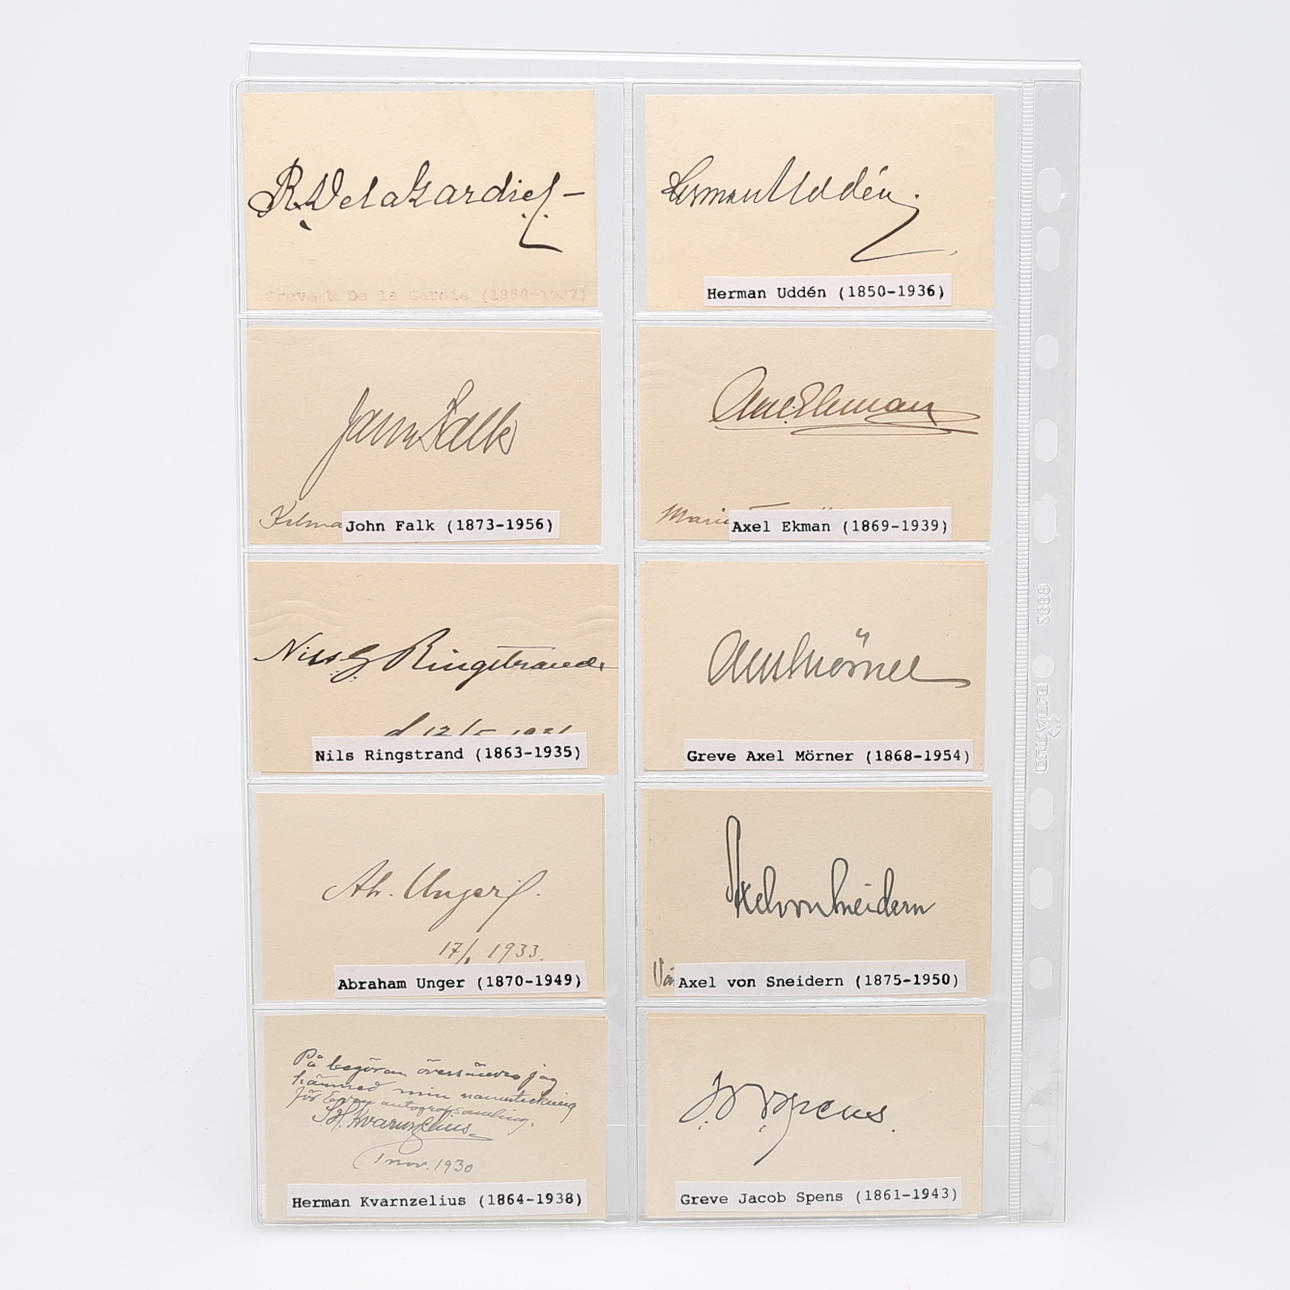 R. De la Gardie
Greve R De la Gardie (1858-1937)
Herman Uddén
Herman Uddén (1850-1936)
John Falk
John Falk (1873-1956)
Axel Ekman
Axel Ekman (1869-1939)
Nils G Ringstrand
Nils Ringstrand (1863-1935)
Axel Mörner
Greve Axel Mörner (1868-1954)
Ab. Unger
17/1 1933.
Abraham Unger (1870-1949)
Axel von Sneidern
Axel von Sneidern (1875-1950)
På begäran översänder jag
härmed min namnteckning
för Eder autografsamling.
H. Kvarnzelius
1 nov. 1930
Herman Kvarnzelius (1864-1938)
Spens.
Greve Jacob Spens (1861-1943)